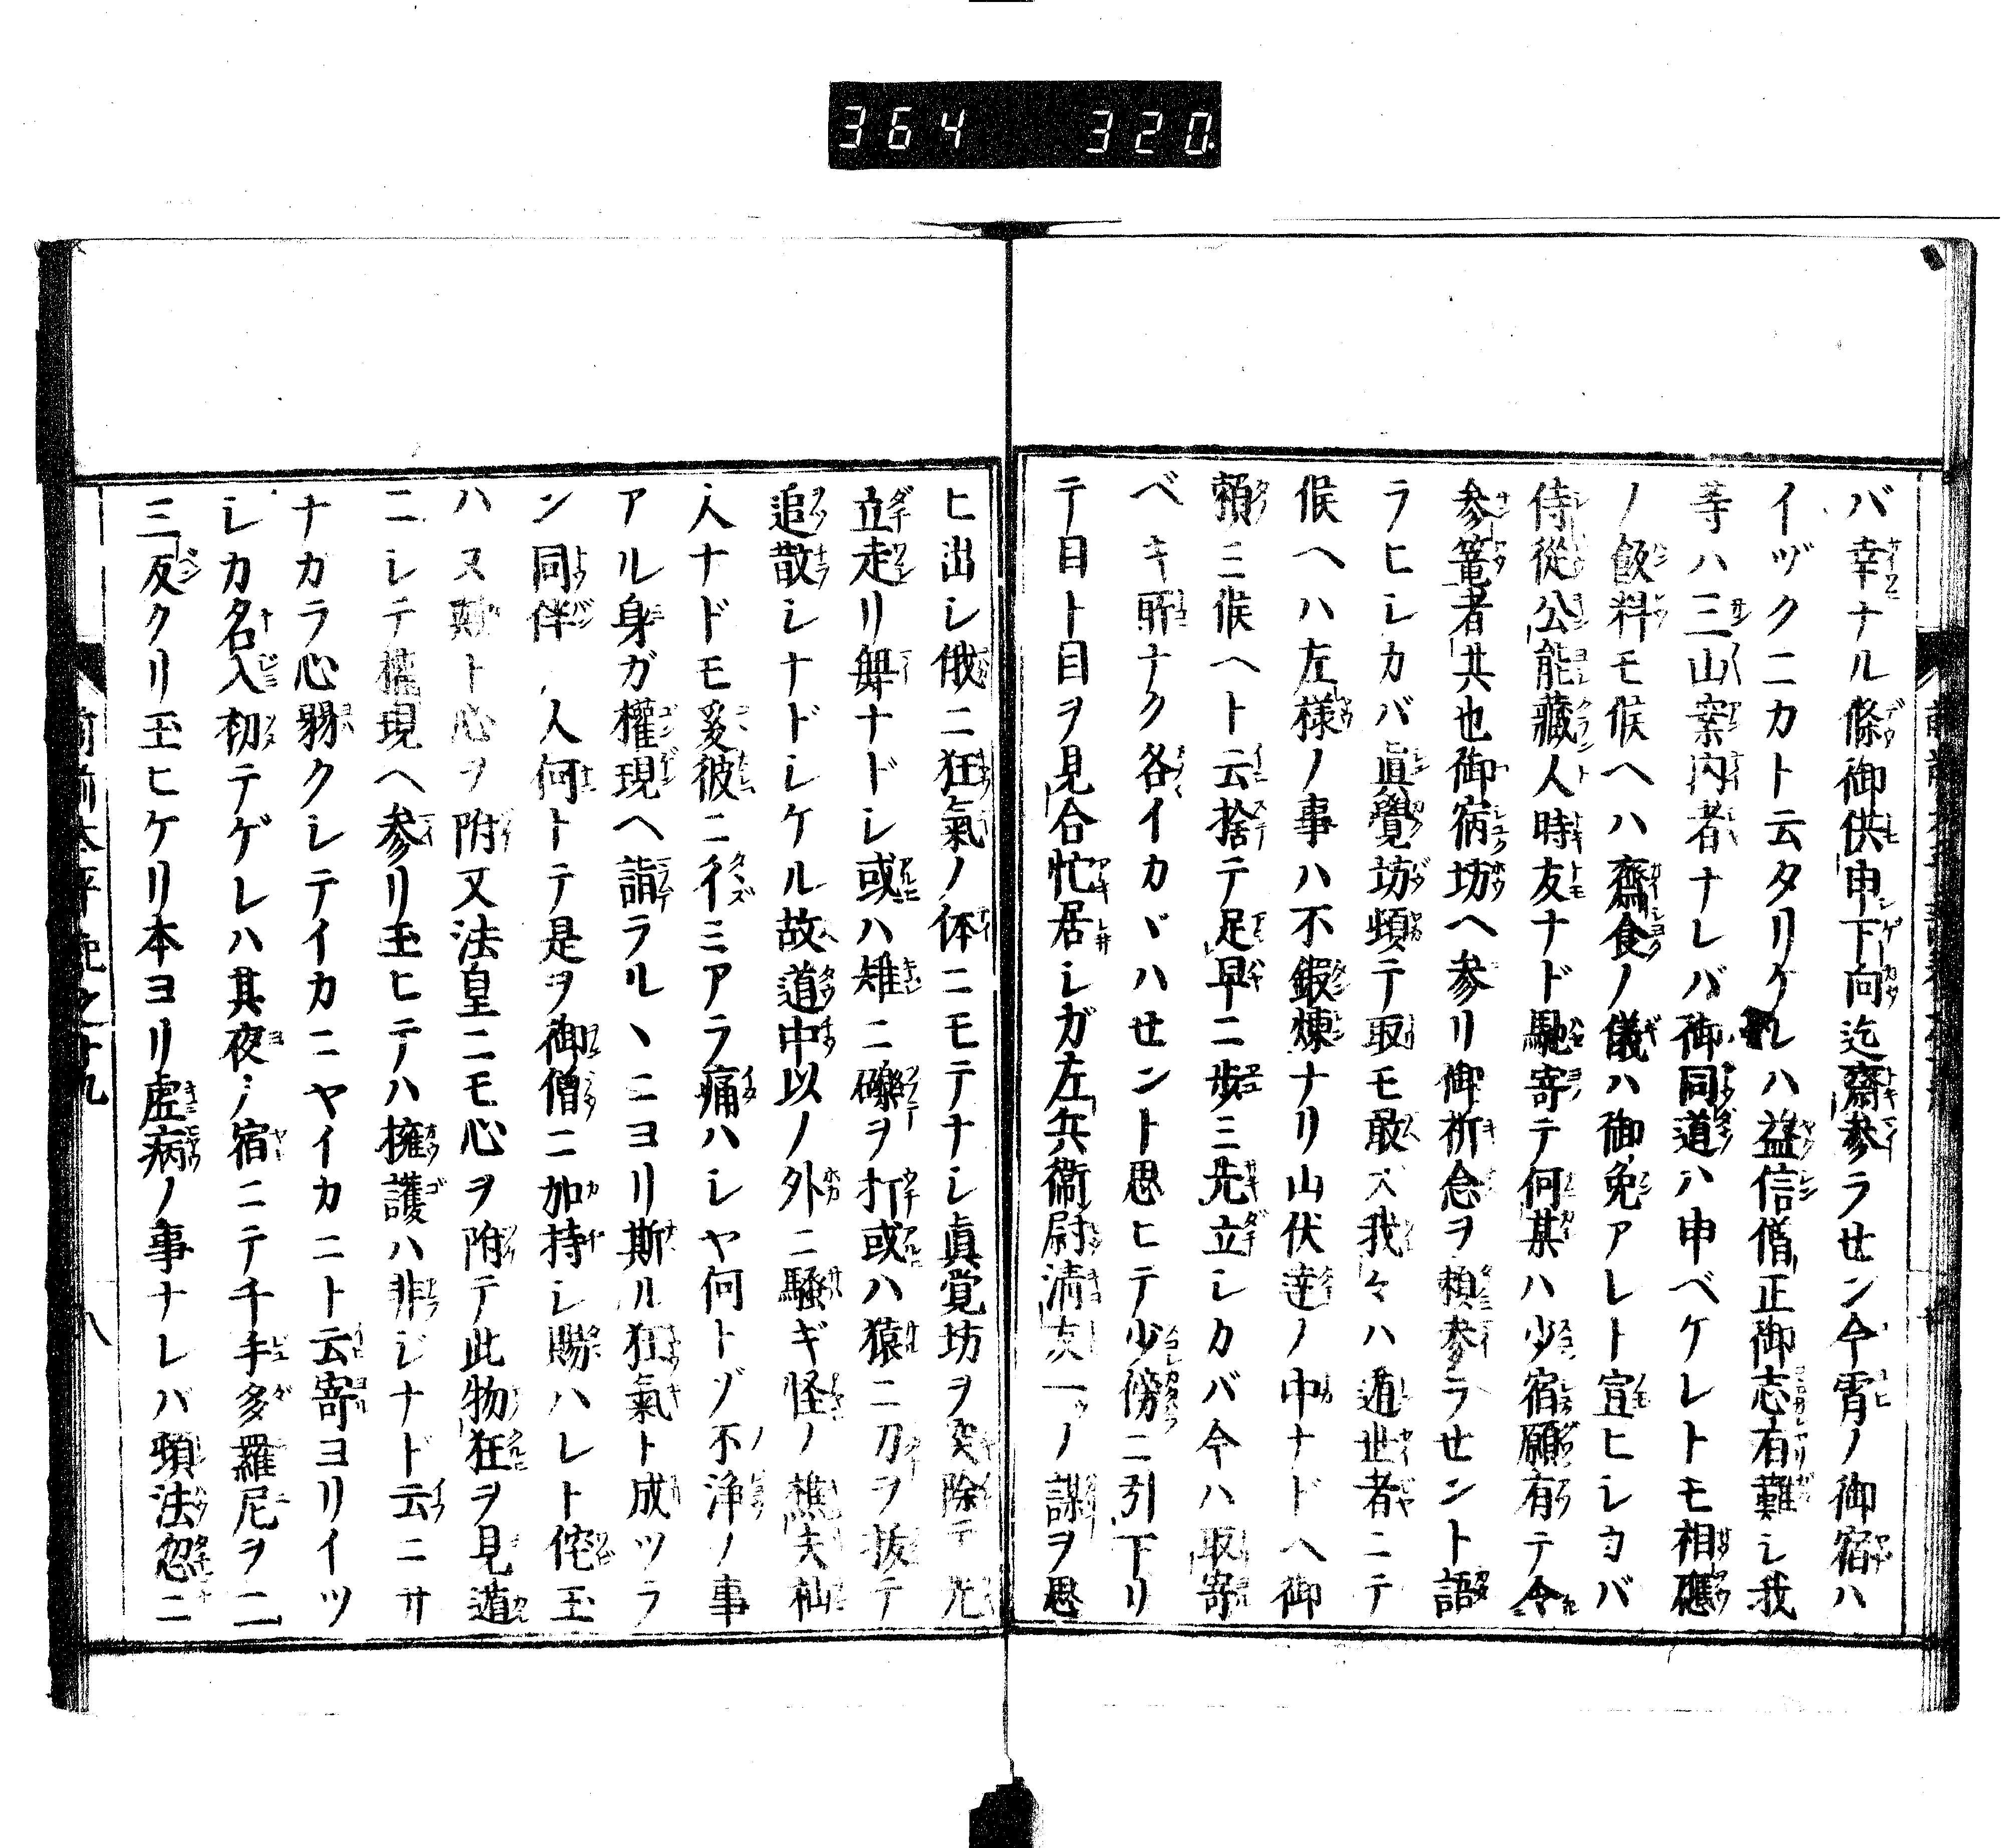 364 320
バ幸ナル條御供申下向迄齋参ラせン今霄ノ御宿ハ
イヅクニカト云タリケレハ益信僧正御志有難シ我
等ハ三山案内者ナレバ御同道ハ申ベケレトモ相應
ノ飯料モ候ヘハ齋食ノ儀ハ御免アレト宣ヒシカバ
侍從公能藏人時友ナド馳寄テ何某ハ少宿願有テ今
参篭者共也御宿坊ヘ参リ御祈念ヲ頼参ラせント語
ラヒシカバ眞覺坊頓テ取モ敢ズ我々ハ遁世者ニテ
候ヘハ左様ノ事ハ不鍛煉ナリ山伏達ノ中ナドヘ御
頼ミ候ヘト云捨テ足早ニ歩ミ先立シカバ今ハ取寄
ベキ耶ナク各イカヾハせント思ヒテ少傍ニ引下リ
テ目ト目ヲ見合忙居シガ左兵衞尉清友一ツノ謀ヲ思
ヒ出シ俄ニ狂氣ノ体ニモテナシ眞覚坊ヲ突除テ先
立走リ舞ナドシ或ハ雉ニ礫ヲ打或ハ猿ニ刀ヲ抜テ
追散シナドシケル故道中以ノ外ニ騒ギ怪ノ樵夫杣
人ナドモ爰彼ニイミアラ痛ハシヤ何トゾ不浄ノ事
アル身ガ權現ヘ詣ラルヽニヨリ斯ル狂氣ト成ツラ
ン同伴ノ人何トテ是ヲ御僧ニ加持シ賜ハレト侘玉
ハヌト心ヲ附又法皇ニモ心ヲ附テ此物狂ヲ見遁
ニシテ權現ヘ参リ玉ヒテハ擁護ハ非ジナド云ニサ
ナカラ心弱クシテイカニヤイカニト云寄ヨリイツ
シカ名入初テゲレハ其夜ノ宿ニテ千手多羅尼ヲ二
三反クリ玉ヒケリ本ヨリ虚病ノ事ナレバ頓法忽ニ
前前太平記之十九
八